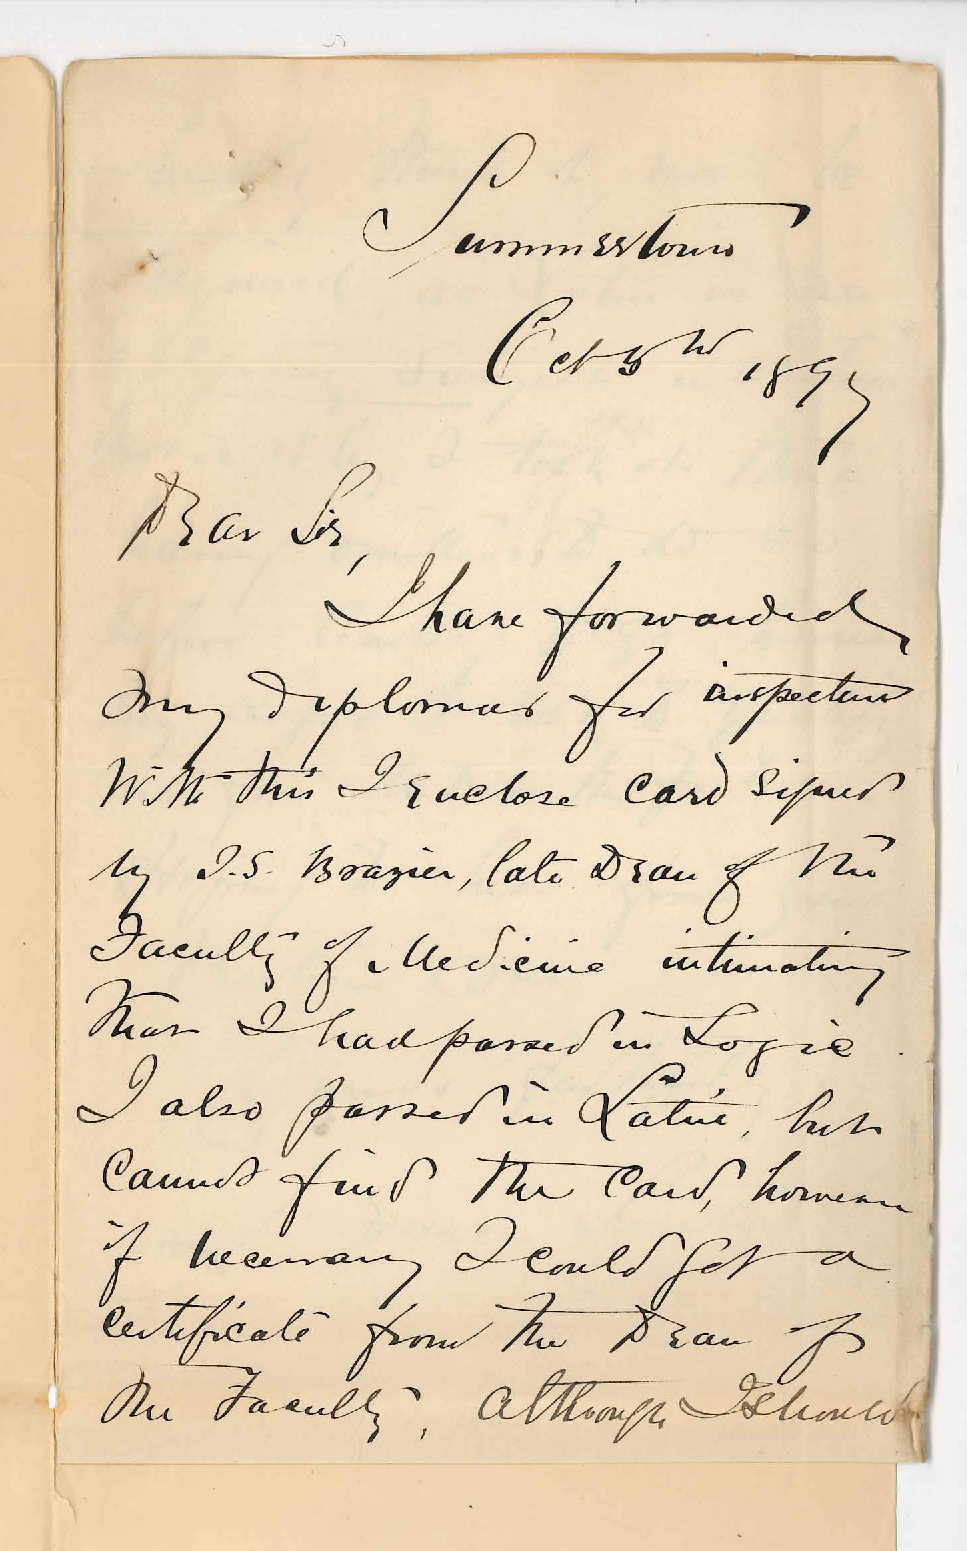 Summerstown
Oct 3rd 1897
Dear Sir,
I have forwarded
my diplomas for inspection
With this I Enclose card signed
by J.S. Brazier, late Dean of the
Faculty of Medicine intimating
that I had passed in Logic
I also passed in Latin, but
cannot find the card, however
if necessary I could get a
certificate from the Dean of
the Faculty, although I should